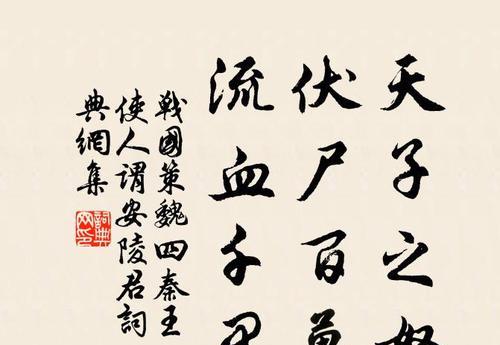 天子之怒
伏尸百萬
流血千里
戰國策魏四秦王
使人謂安陵君詞
典網集